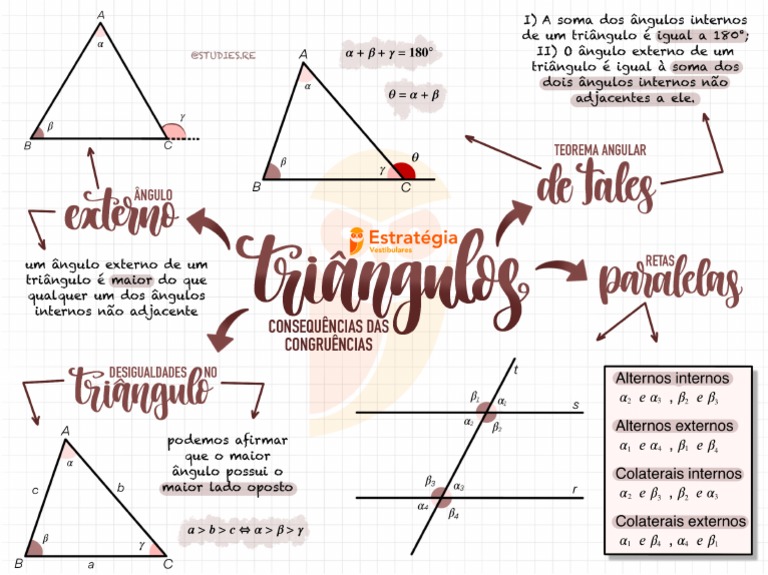 A
α
β
B
C
γ
@STUDIES.RE
α + β + γ = 180°
θ = α + β
A
α
β
γ
θ
B
C
I) A soma dos ângulos internos
de um triângulo é igual a 180°;
II) O ângulo externo de um
triângulo é igual à soma dos
dois ângulos internos não
adjacentes a ele.
TEOREMA ANGULAR
de Tales
ÂNGULO
externo
um ângulo externo de um
triângulo é maior do que
qualquer um dos ângulos
internos não adjacente
Estratégia
Vestibulares
triângulos
CONSEQUÊNCIAS DAS
CONGRUÊNCIAS
RETAS
paralelas
DESIGUALDADES NO
triângulo
A
α
c
b
β
γ
B
a
C
podemos afirmar
que o maior
ângulo possui o
maior lado oposto
a > b > c ⇔ α > β > γ
t
β₁ α₁
s
α₂ β₂
β₃ α₃
r
α₄ β₄
Alternos internos
α₂ e α₃ , β₂ e β₃
Alternos externos
α₁ e α₄ , β₁ e β₄
Colaterais internos
α₂ e β₃ , β₂ e α₃
Colaterais externos
α₁ e β₄ , α₄ e β₁